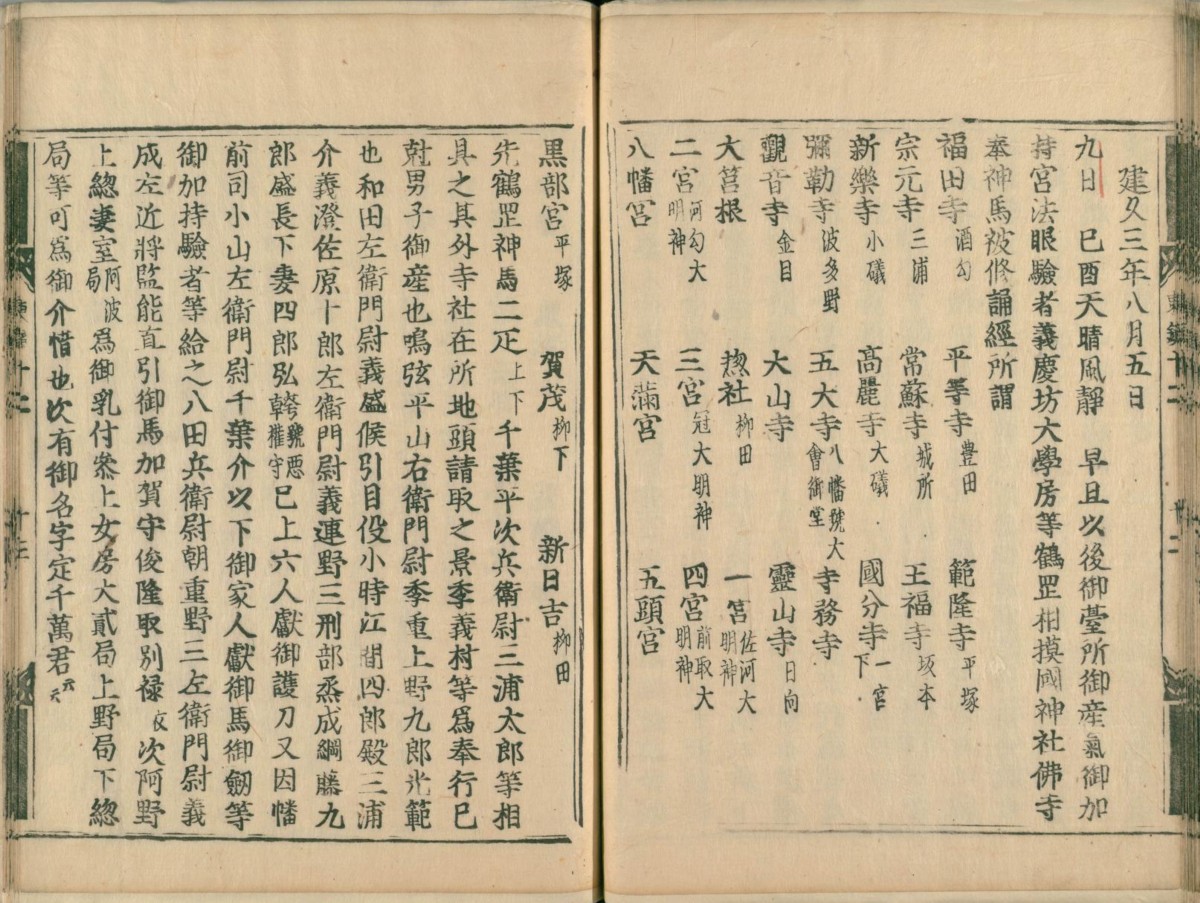 建久三年八月五日
九日 己酉天晴風靜 早旦以後御臺所御産氣御加
持宮法眼驗者義慶坊大學房等鶴罡相摸國神社佛寺
奉神馬被修誦經所謂
福田寺酒勾 平等寺豊田 範隆寺平塚
宗元寺三浦 常蘇寺城所 王福寺坂本
新樂寺小礒 高麗寺大礒 國分寺一宮下
彌勒寺波多野 五大寺八幡號大會御堂 寺務寺
觀音寺金目 大山寺 靈山寺日向
大筥根 惣社柳田 一宮佐河大明神
二宮河勾大明神 三宮冠大明神 四宮前取大明神
八幡宮 天滿宮 五頭宮
黒部宮平塚 賀茂柳下 新日吉柳田
先鶴罡神馬二疋上下千葉平次兵衛尉三浦太郎等相
具之其外寺社在所地頭請取之景季義村等爲奉行巳
尅男子御産也鳴弦平山右衛門尉季重上野九郎光範
也和田左衛門尉義盛候引目役小時江間四郎殿三浦
介義澄佐原十郎左衛門尉義連野三刑部烝成綱藤九
郎盛長下妻四郎弘幹號悪權守已上六人獻御護刀又因幡
前司小山左衛門尉千葉介以下御家人獻御馬御劔等
御加持驗者等給之八田兵衛尉朝重野三左衛門尉義
成左近將監能直引御馬加賀守俊隆取別禄衣次阿野
上總妻室阿波局爲御乳付參上女房大貳局上野局下總
局等可爲御介惜也次有御名字定千萬君云云
東鑑十二
十二
十三